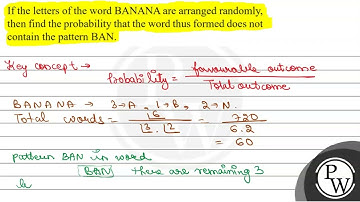 If the letters of the word BANANA are arranged randomly,
then find the probability that the word thus formed does not
contain the pattern BAN.
Key concept →
Probability = favourable outcome
Total outcome
BANANA → 3→A, 1→B, 2→N.
Total words = 6 / 3 2 = 720 / 6.2
= 60
pattern BAN in word
BAN there are remaining 3
le
P
W